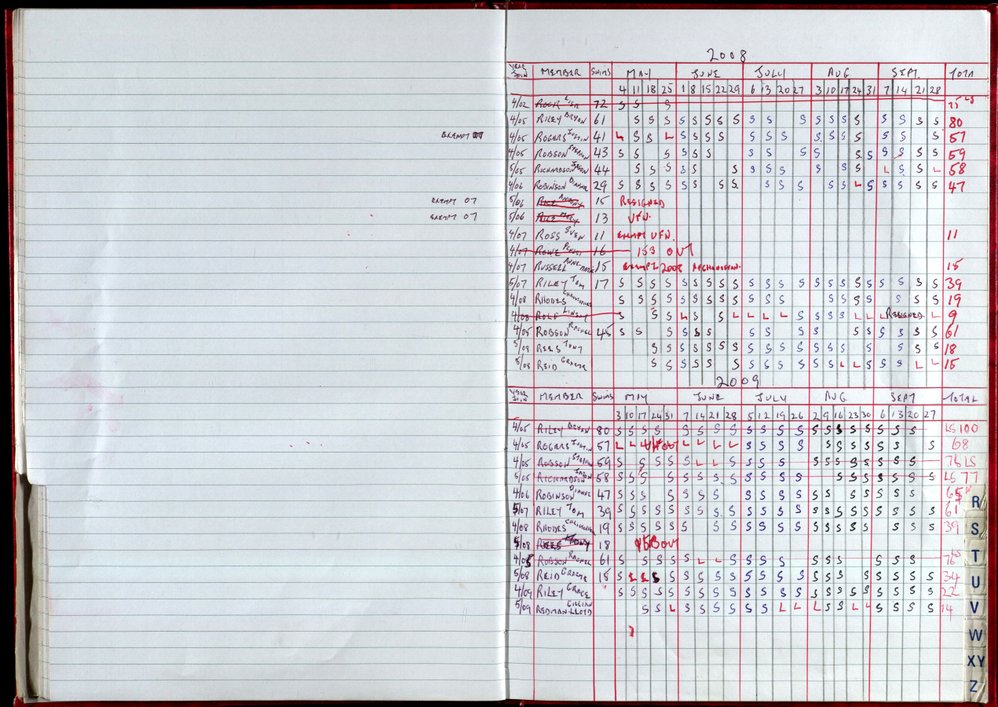 EXEMPT 07
EXEMPT 07
EXEMPT 07
2008
YEAR JOIN MEMBER SWIMS MAY JUNE JULY AUG SEPT. TOTA
4 11 18 25 1 8 15 22 29 6 13 20 27 3 10 17 24 31 7 14 21 28
4/02 72 S S S
4/05 RILEY BRYON 61 S S S S S S S S S S S S S S S S S S S 80
4/05 ROGERS 41 L S S L S S S S S S S S S S S S S S 57
4/05 ROBSON 43 S S S S S S S S S S S S S S S S 59
5/05 RICHARDSON 44 S S S S S S S S S S S L S S L 58
4/06 ROBINSON 29 S S S S S S S S S S S S S L S S S S S 47
5/06 15 RESIGNED
5/06 13 UFN.
4/07 ROSS SVEN 11 EXEMPT UFN. 11
4/07 ROWE 16 153 OUT
4/07 RUSSELL 15 EXEMPT 2008 AFGHANISTAN. 15
5/07 RILEY TOM 17 S S S S S S S S S S S S S S S S S S S S S S 39
4/08 RHODES S S S S S S S S S S S S S S S S S S S 19
4/08 ROLF LINSAY S S S L S L L L L S S S L L L RESIGNED L 9
4/05 ROBSON RACHEL 45 S S S S S S S S S S S S S S S S 61
5/08 REES TONY S S S S S S S S S S S S S S S S S S 18
5/08 REID GRAEME S S S S S S S S S S S L L S S S L L 15
2009
YEAR JOIN MEMBER SWIMS MAY JUNE JULY AUG SEPT TOTAL
3 10 17 24 31 7 14 21 28 5 12 19 26 2 9 16 23 30 6 13 20 27
4/05 RILEY BRYON 80 S S S S S S S S S S S S S S S S S S S S S LS 100
4/05 ROGERS 57 L L L L L L L S S S S S S S S S S S S 68
4/05 ROBSON 59 S S S S S L L S S S S S S S S S S S S S 76 LS
5/05 RICHARDSON 58 S S S S S S S S S S S S S S S S S S S LS 77
4/06 ROBINSON 47 S S S S S S S S S S S S S S S S S 65
5/07 RILEY TOM 39 S S S S S S S S S S S S S S S S S S S S S S 61
4/08 RHODES 19 S S S S S S S S S S S S S S S S S S S S 39
5/08 REES TONY 18 OUT
4/05 ROBSON RACHEL 61 S S S S S L L S S S S S S S S S S S 76
5/08 REID GRAEME 15 S L L S S S S S S S S S S S S S S S S S S 34
4/09 RILEY GRACE S S S S S S S S S S S S S S S S S S S S S S 22
5/09 REDMAN-LLOYD GILLIAN S S L S S S S S S S L L L S L L S S S S 14
R
S
T
U
V
W
XY
Z